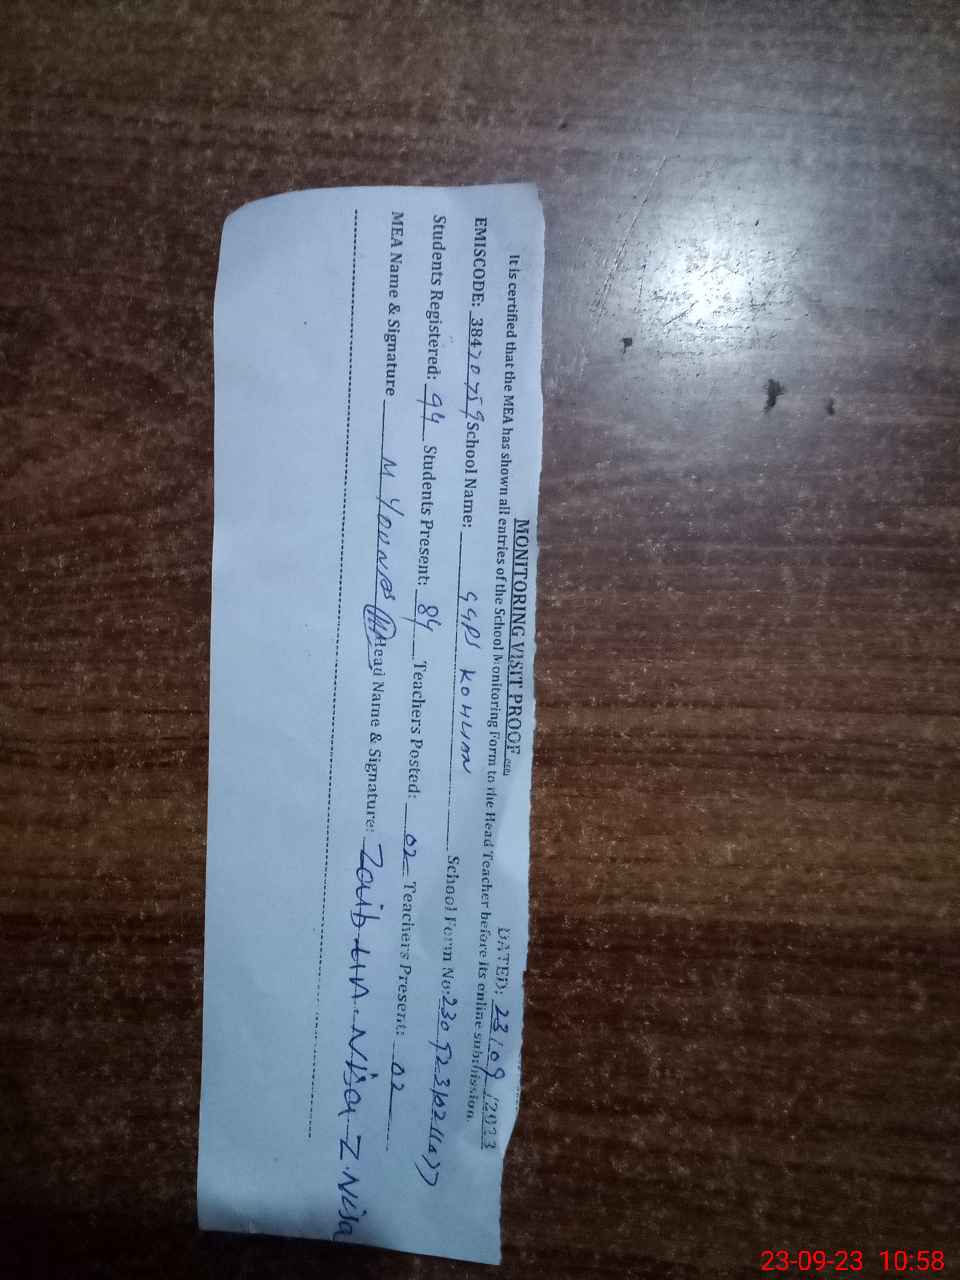 MONITORING VISIT PROOF
DATED: 23/09/2023
It is certified that the MEA has shown all entries of the School Monitoring Form to the Head Teacher before its online submission.
EMISCODE: 38470759 School Name: GGPS KOHLIAN School Form No:
Students Registered: 94 Students Present: 84 Teachers Posted: 02 Teachers Present: 02
MEA Name & Signature M YOUNAS Head Name & Signature: Zaib-un-Nisa Z.Nisa
23-09-23 10:58